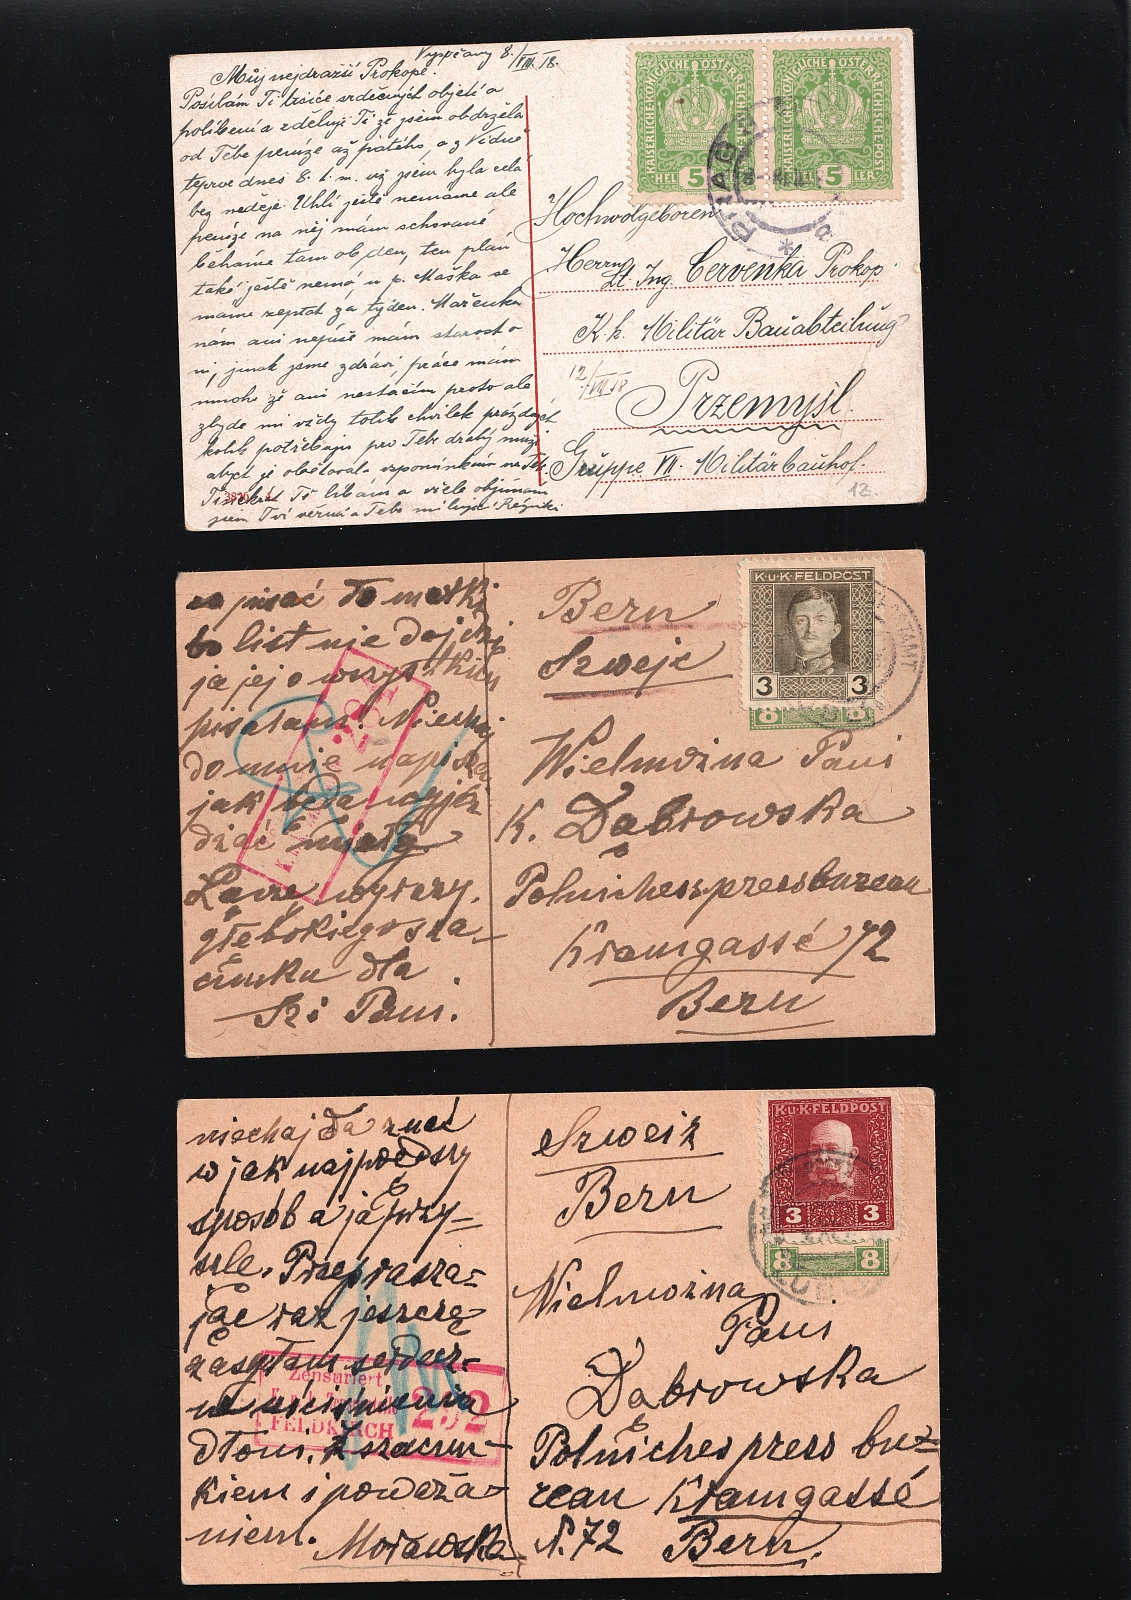 Vysočany 8./VIII. 18.
Můj nejdražší Prokope.
Posílám Ti tisíce srdečných objetí a
políbení a zděluji Ti že jsem obdržela
od Tebe peníze až pátého, a z Vídně
teprve dnes 8. t. m. už jsem byla celá
bez naděje. Uhlí ještě nemáme ale
peníze na něj mám schované
běháme tam ob den, ten plán
také ještě nemá, u p. Maška se
máme zeptat za týden. Mařenka
nám ani nepíše mám starost o
ni, jinak jsme zdrávi, práce mám
mnoho že ani nestačím proto ale
zbyde mi vždy tolik chvilek prázdných
kolik potřebuju pro Tebe drahý muži
abych je obětovala vzpomínkám na Tebe.
Tisíckrát Tě líbám a vřele objímám
jsem Tvá věrná a Tebe milující
KAISERLICHE KÖNIGLICHE ÖSTERREICHISCHE POST
5 HELLER 5
KAISERLICHE KÖNIGLICHE ÖSTERREICHISCHE POST
5 HELLER 5
PRAG
Hochwolgeboren
Herrn
Lt. Ing. Červenka Prokop
K. k. Militär Bauabteilung
12/VIII 18
Przemyśl.
Gruppe VII. Militärbauhof.
12.
co pisać do matki
bo list nie dojdzie
ja jej o wszystkim
pisałam. Niech
do mnie napisze
jak będą wyjeż
dzać miały
Łączę wyrazy
głębokiego sza-
cunku dla
Sz. Pani.
Bern
Szwejc
K.u.K. FELDPOST
3 3
8 8
Wielmożna Pani
K. Dąbrowska
Polnichesspressbureau
Kramgassé 72
Bern
niechaj da znać
w jak najprędszy
sposób a ja przy-
szlę. Przepraszа-
jąc raz jeszczę
zasyłam serdecz-
ne uściśnienia
dłoni, z szacun-
kiem i poważa-
niem.
Morawska
Zensuriert
FELDKIRCH
252
Szweiz
Bern
K.u.K. FELDPOST
3 3
8 8
Wielmożna
Pani
Dąbrowska
Polniches press bu=
reau Kramgassé
N. 72 Bern.